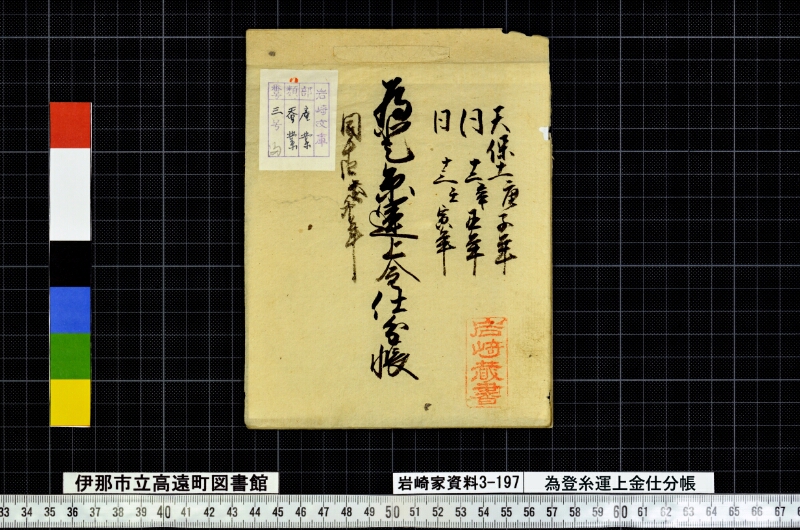 天保十一庚子年
同 十二辛丑年
同 十三壬寅年
為登糸運上金仕分帳
岩崎文庫
部 産業
類 蚕業
岩崎蔵書
伊那市立高遠町図書館
岩崎家資料3-197
為登糸運上金仕分帳
33 34 35 36 37 38 39 40 41 42 43 44 45 46 47 48 49 50 51 52 53 54 55 56 57 58 59 60 61 62 63 64 65 66 67